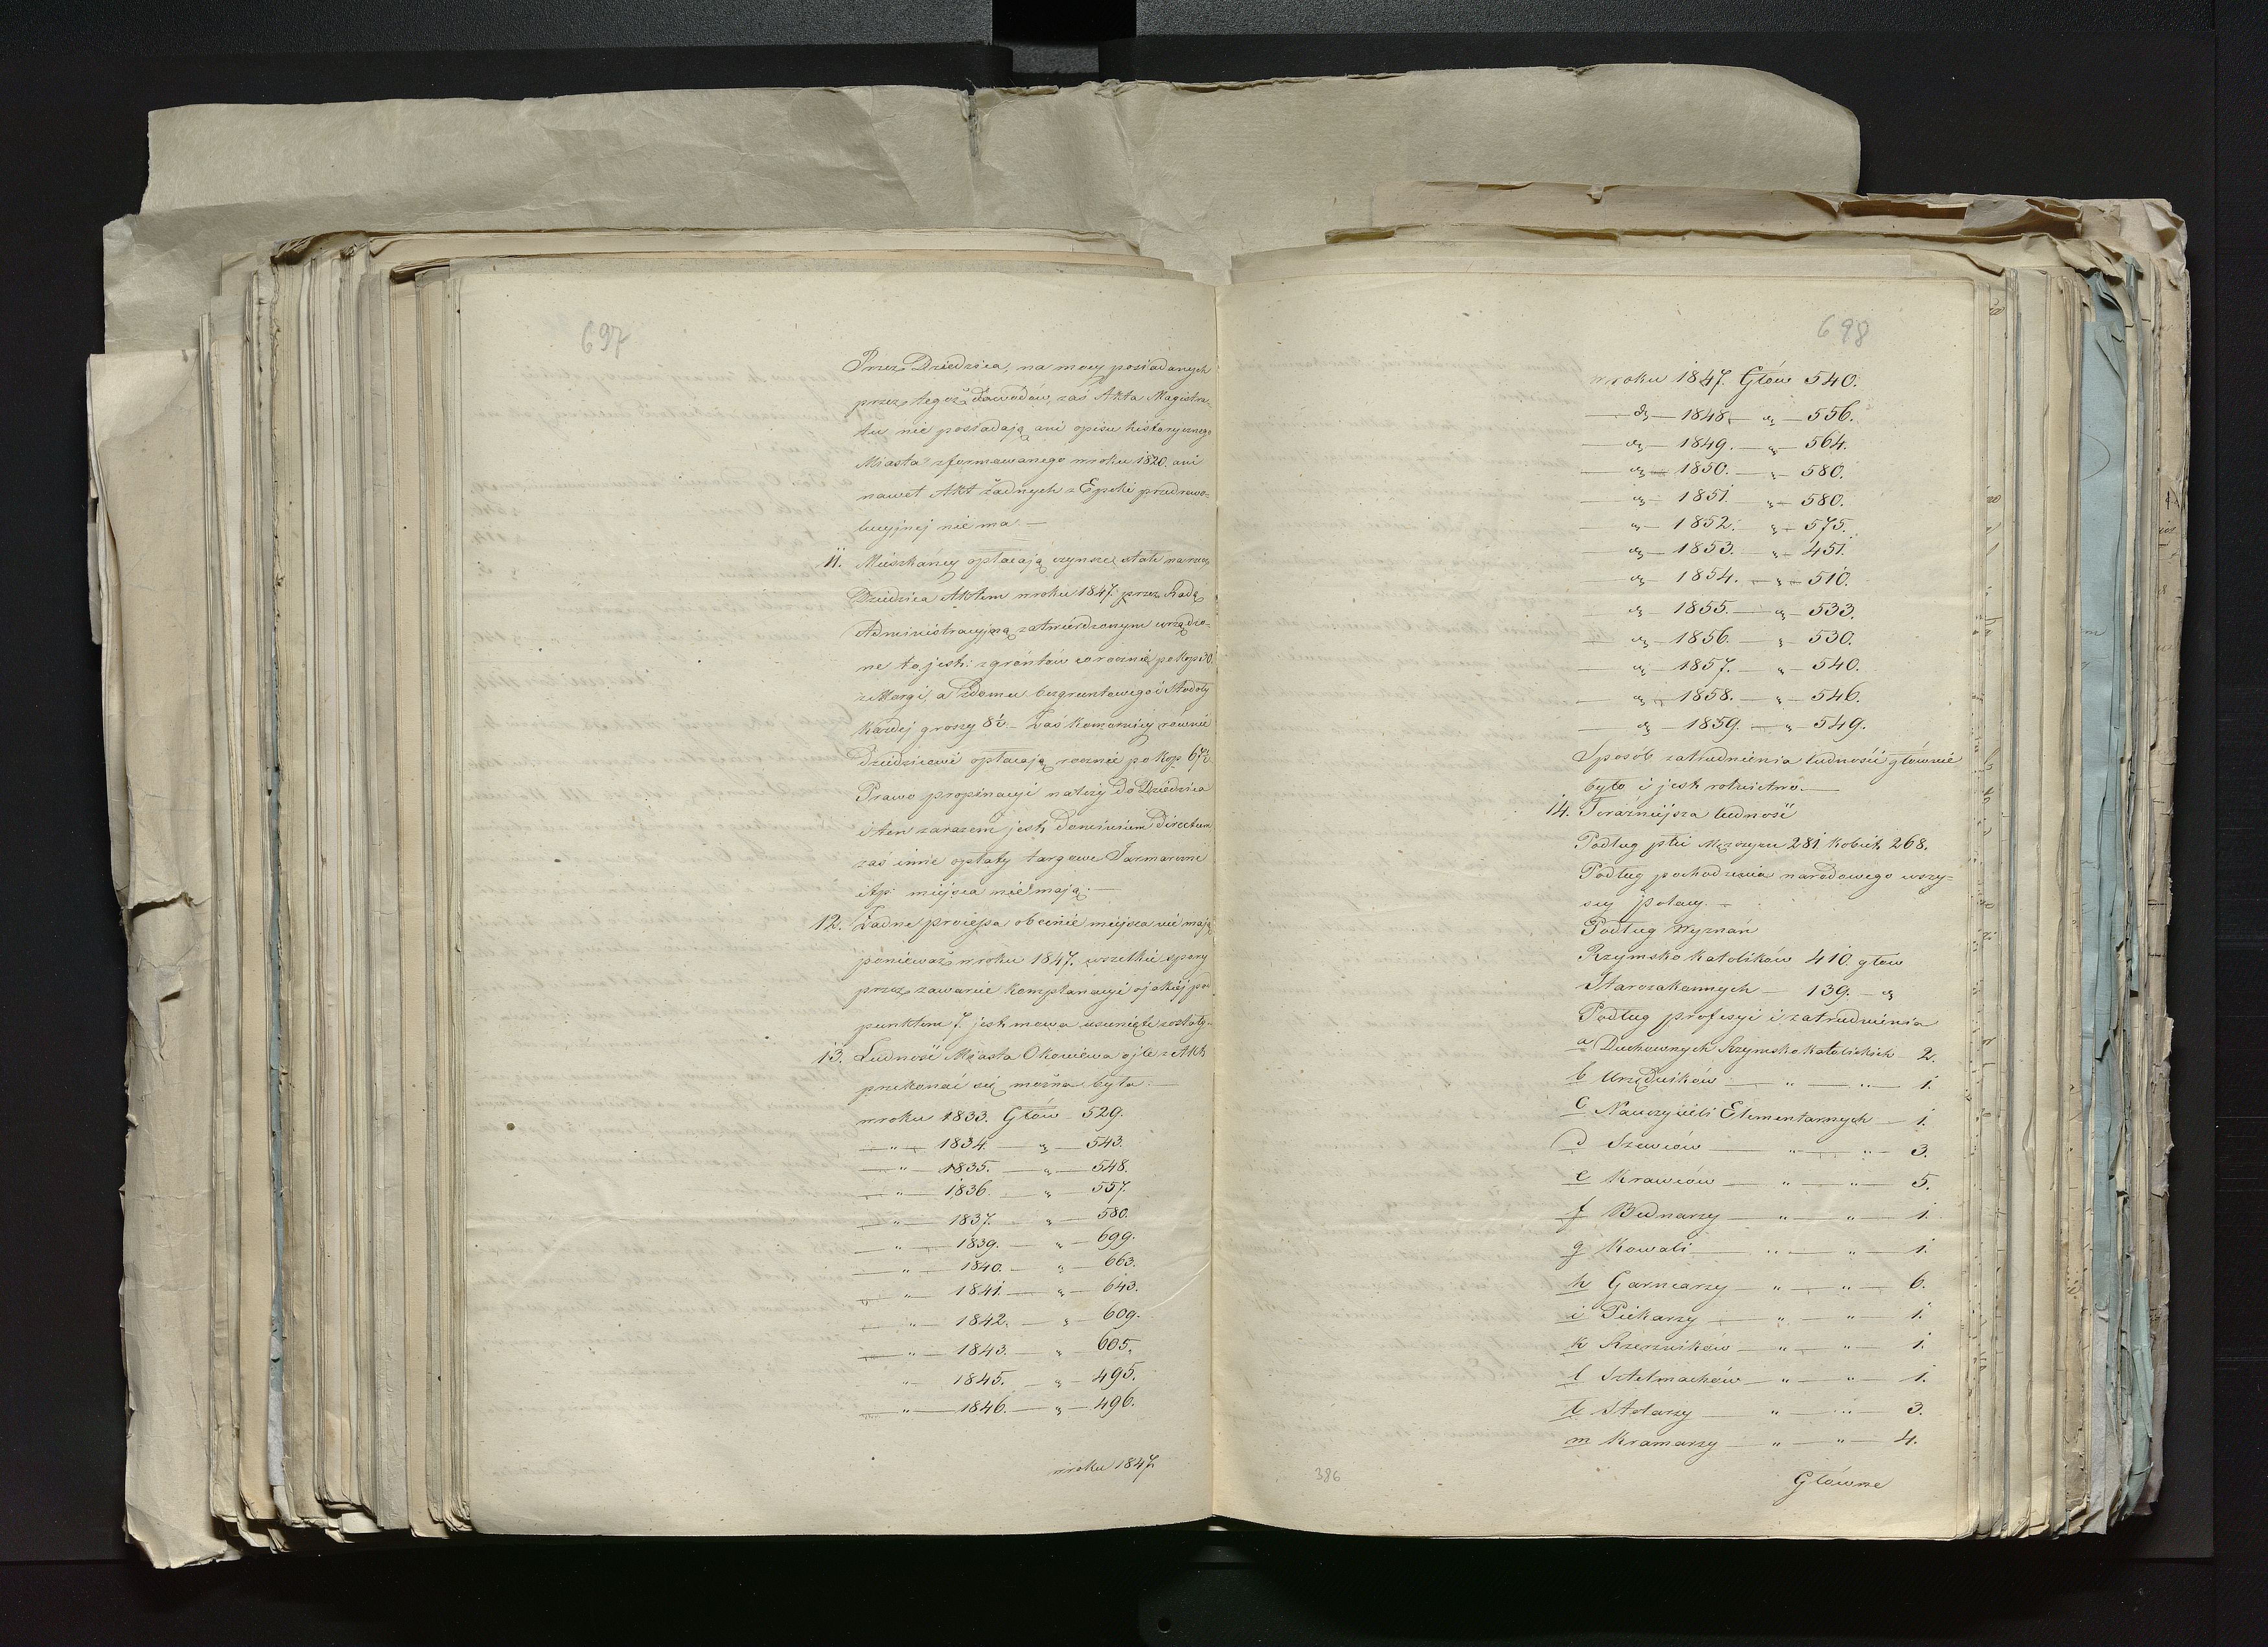 697
Przez Dziedzica, na mocy posiadanych
przez tegoż dowodów, zaś Akta Magistra-
tu nie posiadają ani opisu historycznego
Miasta zformowanego w roku 1820. ani
nawet Akt żadnych z Epoki przedrewo-
lucyjnej nie ma —
11. Mieszkańcy opłacają czynsze stałe na rzecz
Dziedzica Aktem w roku 1847. przez Radę
Administracyjną zatwierdzonym urządzo-
ne to jest: z gróntów corocznie po kop 30.
z Morgi, a z Domu bezgruntowego i Stodoły
każdej groszy 8½ – Zaś Komornicy równie
Dziedzicowi opłacają rocznie po kop 67½
Prawo propinacyi należy do Dziedzica
i ten zarazem jest Dominium Directum
zaś inne opłaty targowe Jarmarczne
itp: miejsca nie mają. —
12. Żadne processa obecnie miejsca nie mają
ponieważ w roku 1847. wszelkie spory
przez zawarcie komplanacyi o jakiéj pod
punktem 7. jest mowa usunięte zostały.–
13. Ludność Miasta Okoniewa o ile z Akt
przekonać się można była. —
w roku 1833. Głów 529.
— „ — 1834. — „ — 543.
— „ — 1835. — „ — 548.
— „ — 1836. — „ — 557.
— „ — 1837. — „ — 580.
— „ — 1839. — „ — 699.
— „ — 1840. — „ — 663.
— „ — 1841. — „ — 643.
— „ — 1842. — „ — 609.
— „ — 1843. — „ — 605.
„ — 1845. — „ — 495.
— „ — 1846. — „ — 496.
w roku 1847
698
w roku 1847. Głów 540.
— „ — 1848. — „ — 556.
— „ — 1849. — „ — 564.
— „ — 1850. — „ — 580.
— „ — 1851. „ — 580.
— „ — 1852. „ — 575.
— „ — 1853. — „ — 451.
— „ — 1854. — „ — 510.
— „ — 1855. — „ — 533.
— „ — 1856. — „ — 530.
— „ — 1857. — „ — 540.
— „ — 1858. — „ — 546.
— „ — 1859. — „ — 549.
Sposób zatrudnienia ludności głównie
było i jest rolnictwo. —
14. Teraźniejsza ludność
Podług płci Mężczyzn 281 kobiet 268.
Podług pochodzenia narodowego wszy-
scy polacy. —
Podług Wyznań
Rzymsko katolików 410 głów
Starozakonnych — 139. — „
Podług profesyi i zatrudnienia
a Duchownych Rzymsko katolickich 2.
b Urzędników — „ — „ — 1.
c Nauczycieli Elementarnych — 1.
d Szewców — „ — „ — 3.
e Krawców — „ — „ — 5.
f Bednarzy — „ — „ — 1.
g Kowali — „ — „ — 1.
h Garncarzy — „ — „ — 6.
i Piekarzy — „ — „ — 1.
k Rzezników — „ — „ — 1.
l Sztelmachów — „ — „ — 1.
ł Stolarzy — „ — „ — 3.
m Kramarzy — „ — „ — 4.
Główne
386